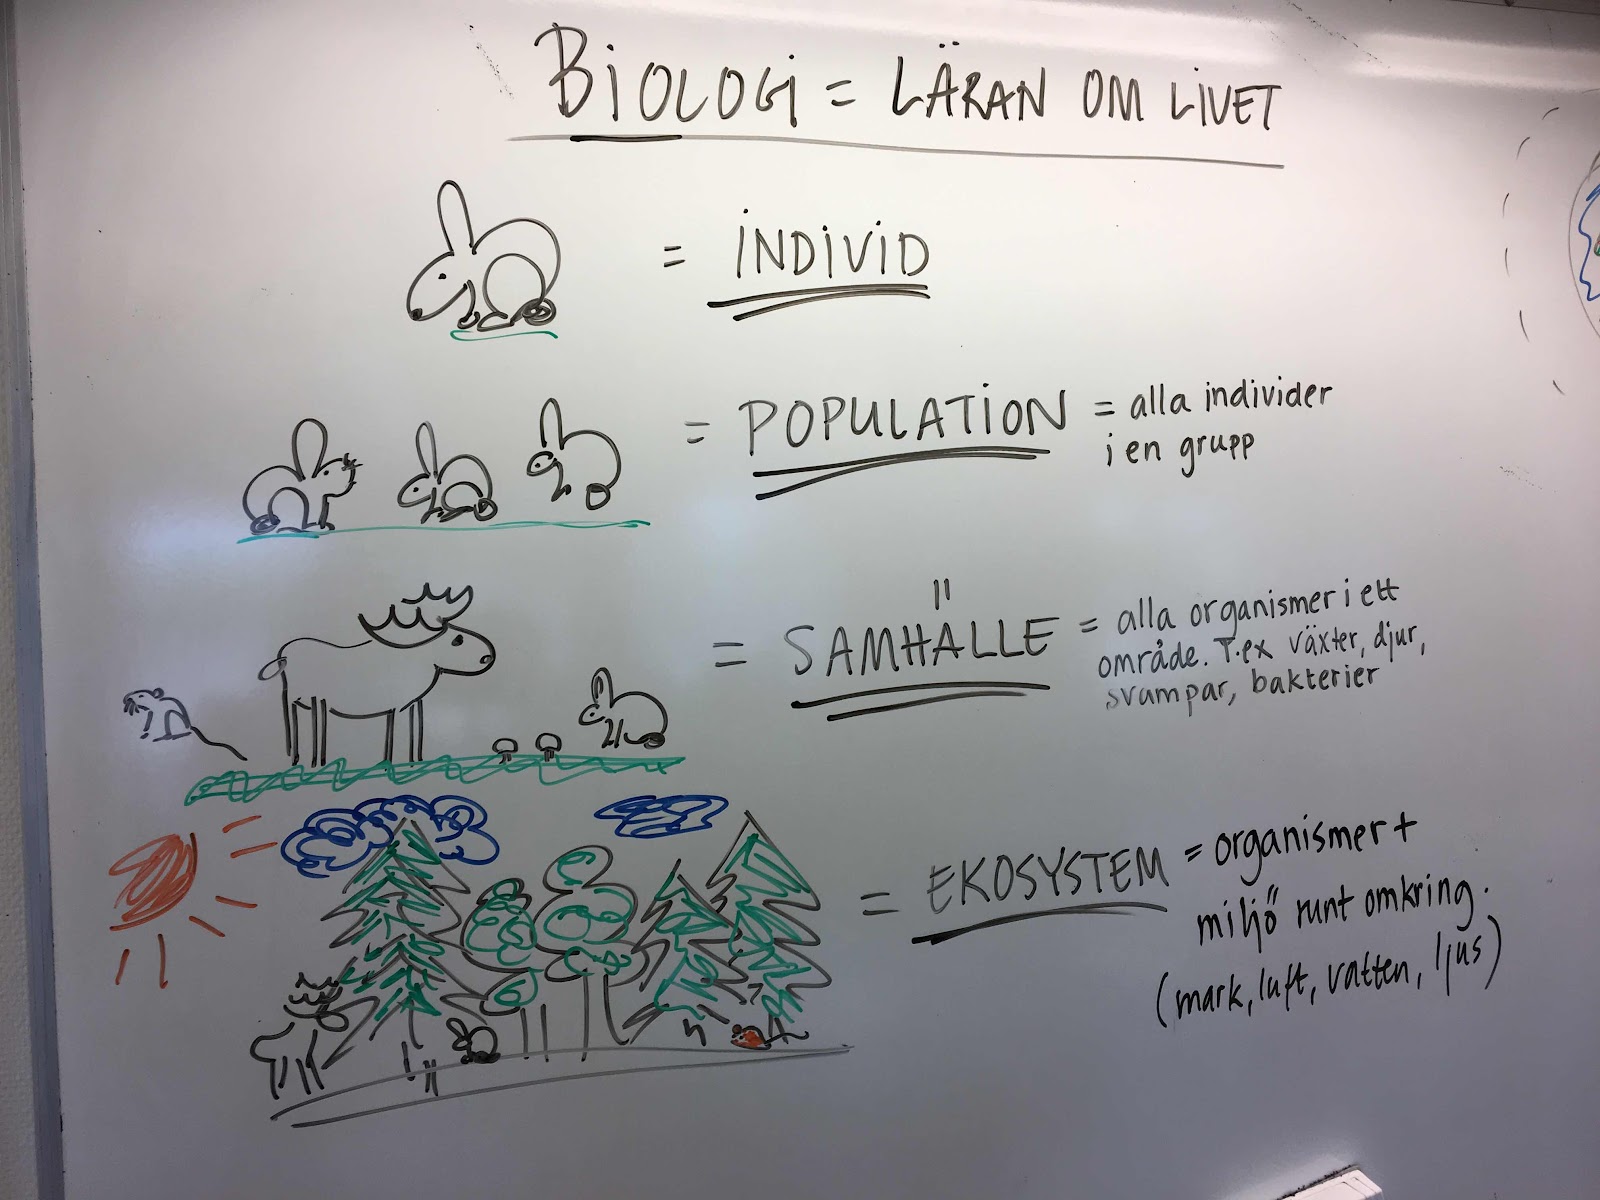 BIOLOGI = LÄRAN OM LIVET
= INDIVID
= POPULATION = alla individer
i en grupp
= SAMHÄLLE = alla organismer i ett
område. T.ex växter, djur,
svampar, bakterier
= EKOSYSTEM = organismer +
miljö runt omkring.
(mark, luft, vatten, ljus)